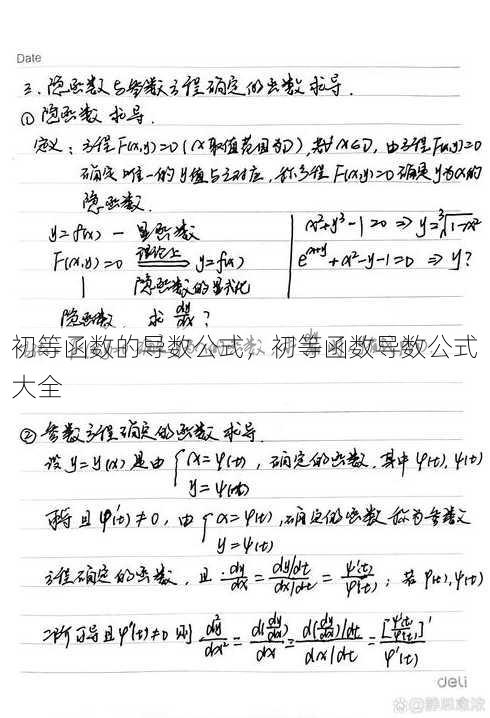 Date
三、隐函数与参数方程确定的函数求导.
① 隐函数求导.
定义: 方程F(x,y)=0 (x取值范围为D), 若∀x∈D, 由方程F(x,y)=0
确定唯一的y值与之对应, 称方程F(x,y)=0确定y为x的
隐函数.
y=f(x) — 显函数
x²+y³-1=0 ⇒ y=∛1-x²
F(x,y)=0 理论上 ⟹ y=f(x)
e^{x+y}+x²-y-1=0 ⇒ y?
隐函数的显式化
隐函数 求 dy/dx ?
初等函数的导数公式，初等函数导数公式
大全
② 参数方程确定的函数求导.
设y=y(x)是由 { x=φ(t), 确定的函数, 其中φ(t), ψ(t)
y=ψ(t)
可导且φ'(t)≠0, 由 { x=φ(t), 确定的函数称为参数
y=ψ(t)
方程确定的函数, 且 dy/dx = dy/dt / dx/dt = ψ'(t)/φ'(t); 若φ(t), ψ(t)
二阶可导且φ'(t)≠0 则 d²y/dx² = d(dy/dx)/dx = d(dy/dx)/dt / dx/dt = [ψ'(t)/φ'(t)]' / φ'(t)
deli